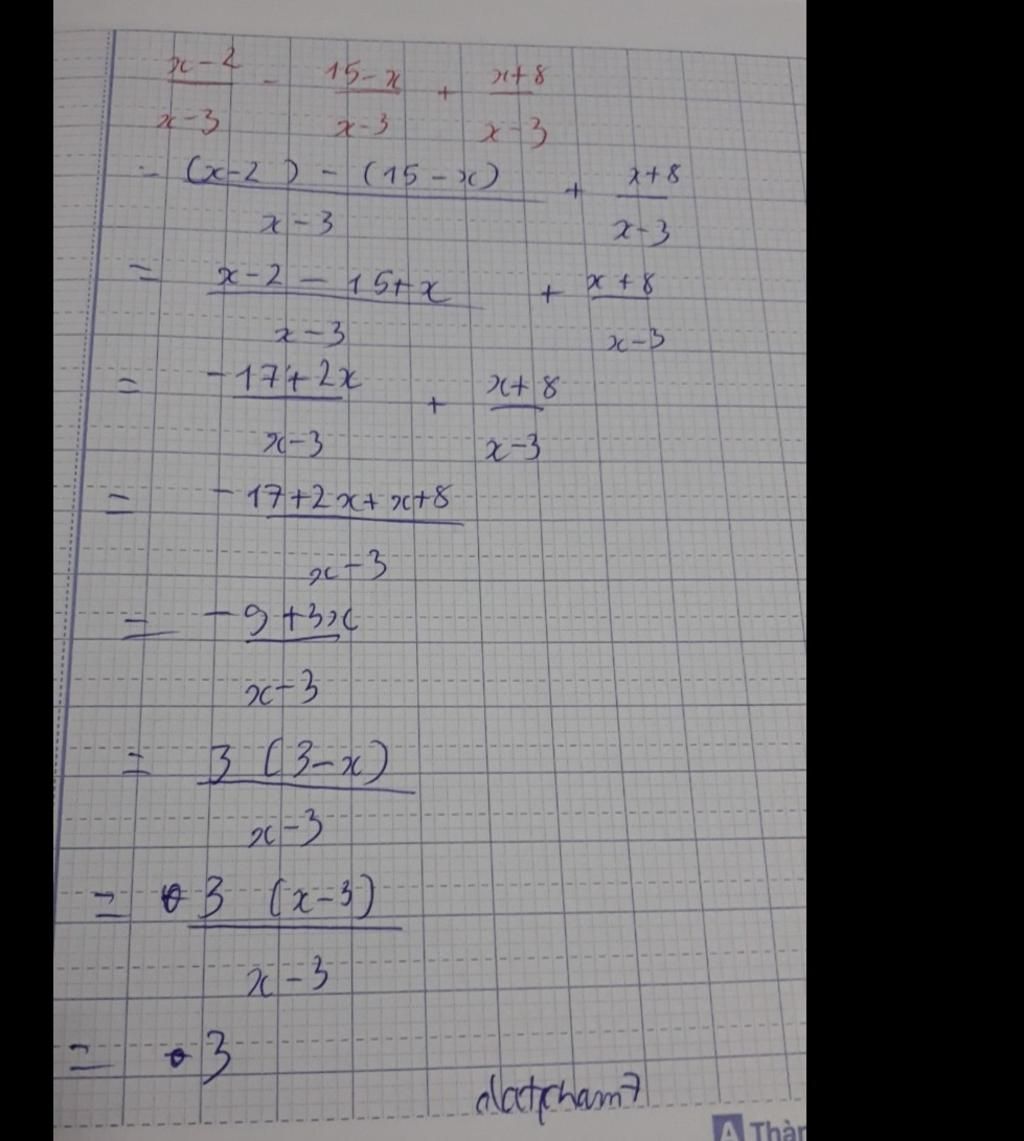 x-2/x-3 - 15-x/x-3 + x+8/x-3
- (x-2) - (15-x)/x-3 + x+8/x-3
= x-2-15+x/x-3 + x+8/x-3
= -17+2x/x-3 + x+8/x-3
= -17+2x+x+8/x-3
= -9+3x/x-3
= 3(3-x)/x-3
= 3(x-3)/x-3
= 3
A Thàn